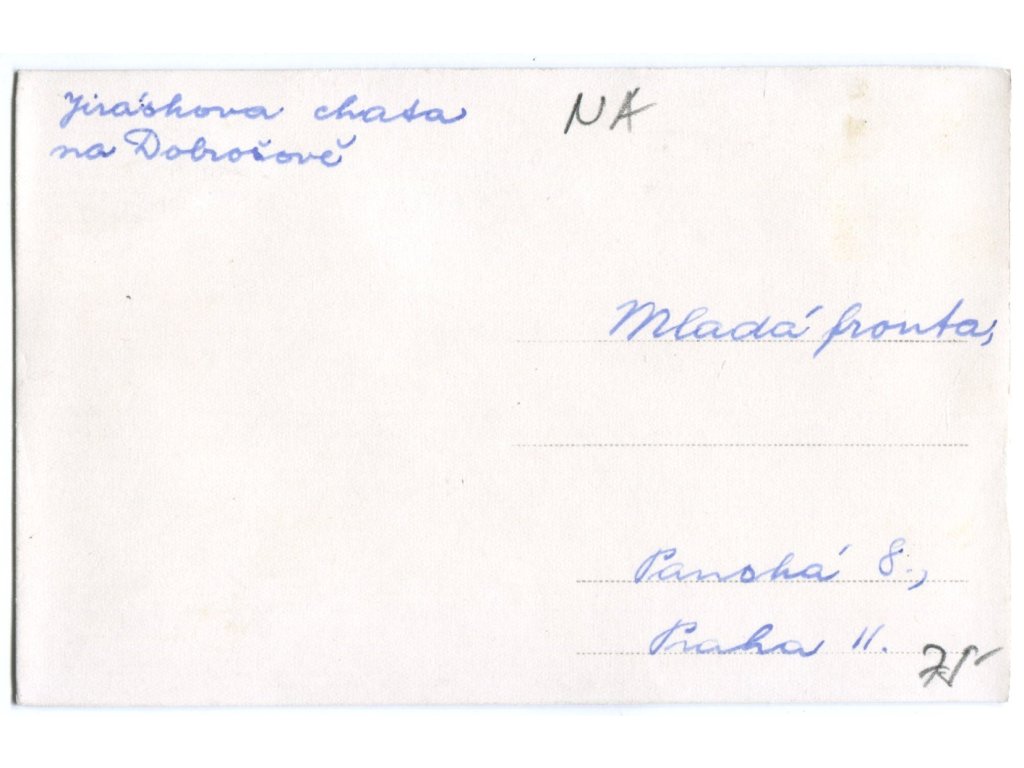 Jiráskova chata
na Dobrošově
NA
Mladá fronta,
Panská 8.,
Praha II.